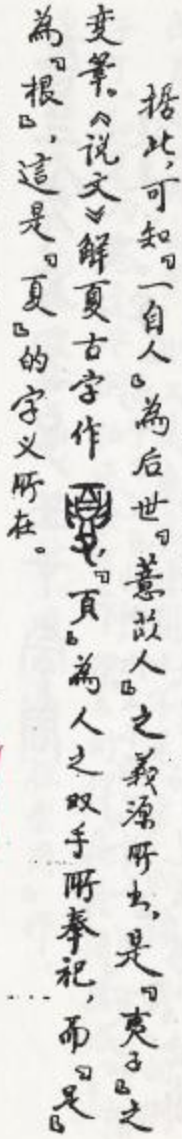 据此，可知『一自人』為后世『蒠故人』之義源所出，是『夷子』之
变筆。《说文》解夏古字作，『頁』為人之双手所奉祀，而『是』
為『根』，這是『夏』的字义所在。